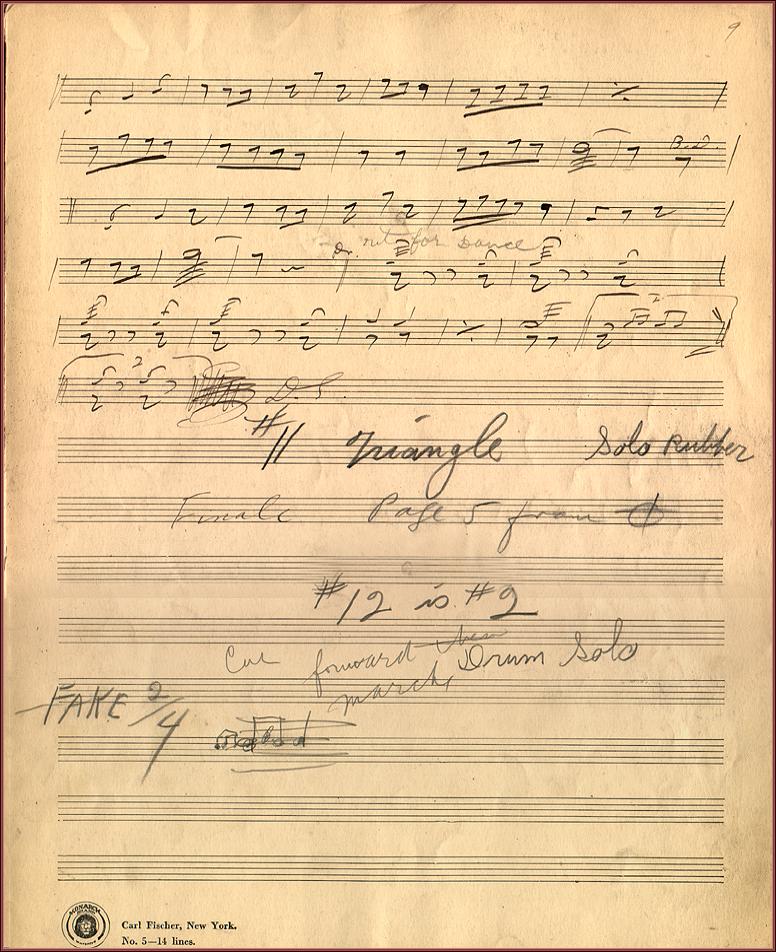 9
B.D.
nut for Dance
D.S.
#11 Triangle Solo Rubber
Finale Page 5 from
#12 is #2
Cue forward then
march Drum Solo
FAKE 2/4
MONARCH BRAND
Carl Fischer, New York.
No. 5—14 lines.